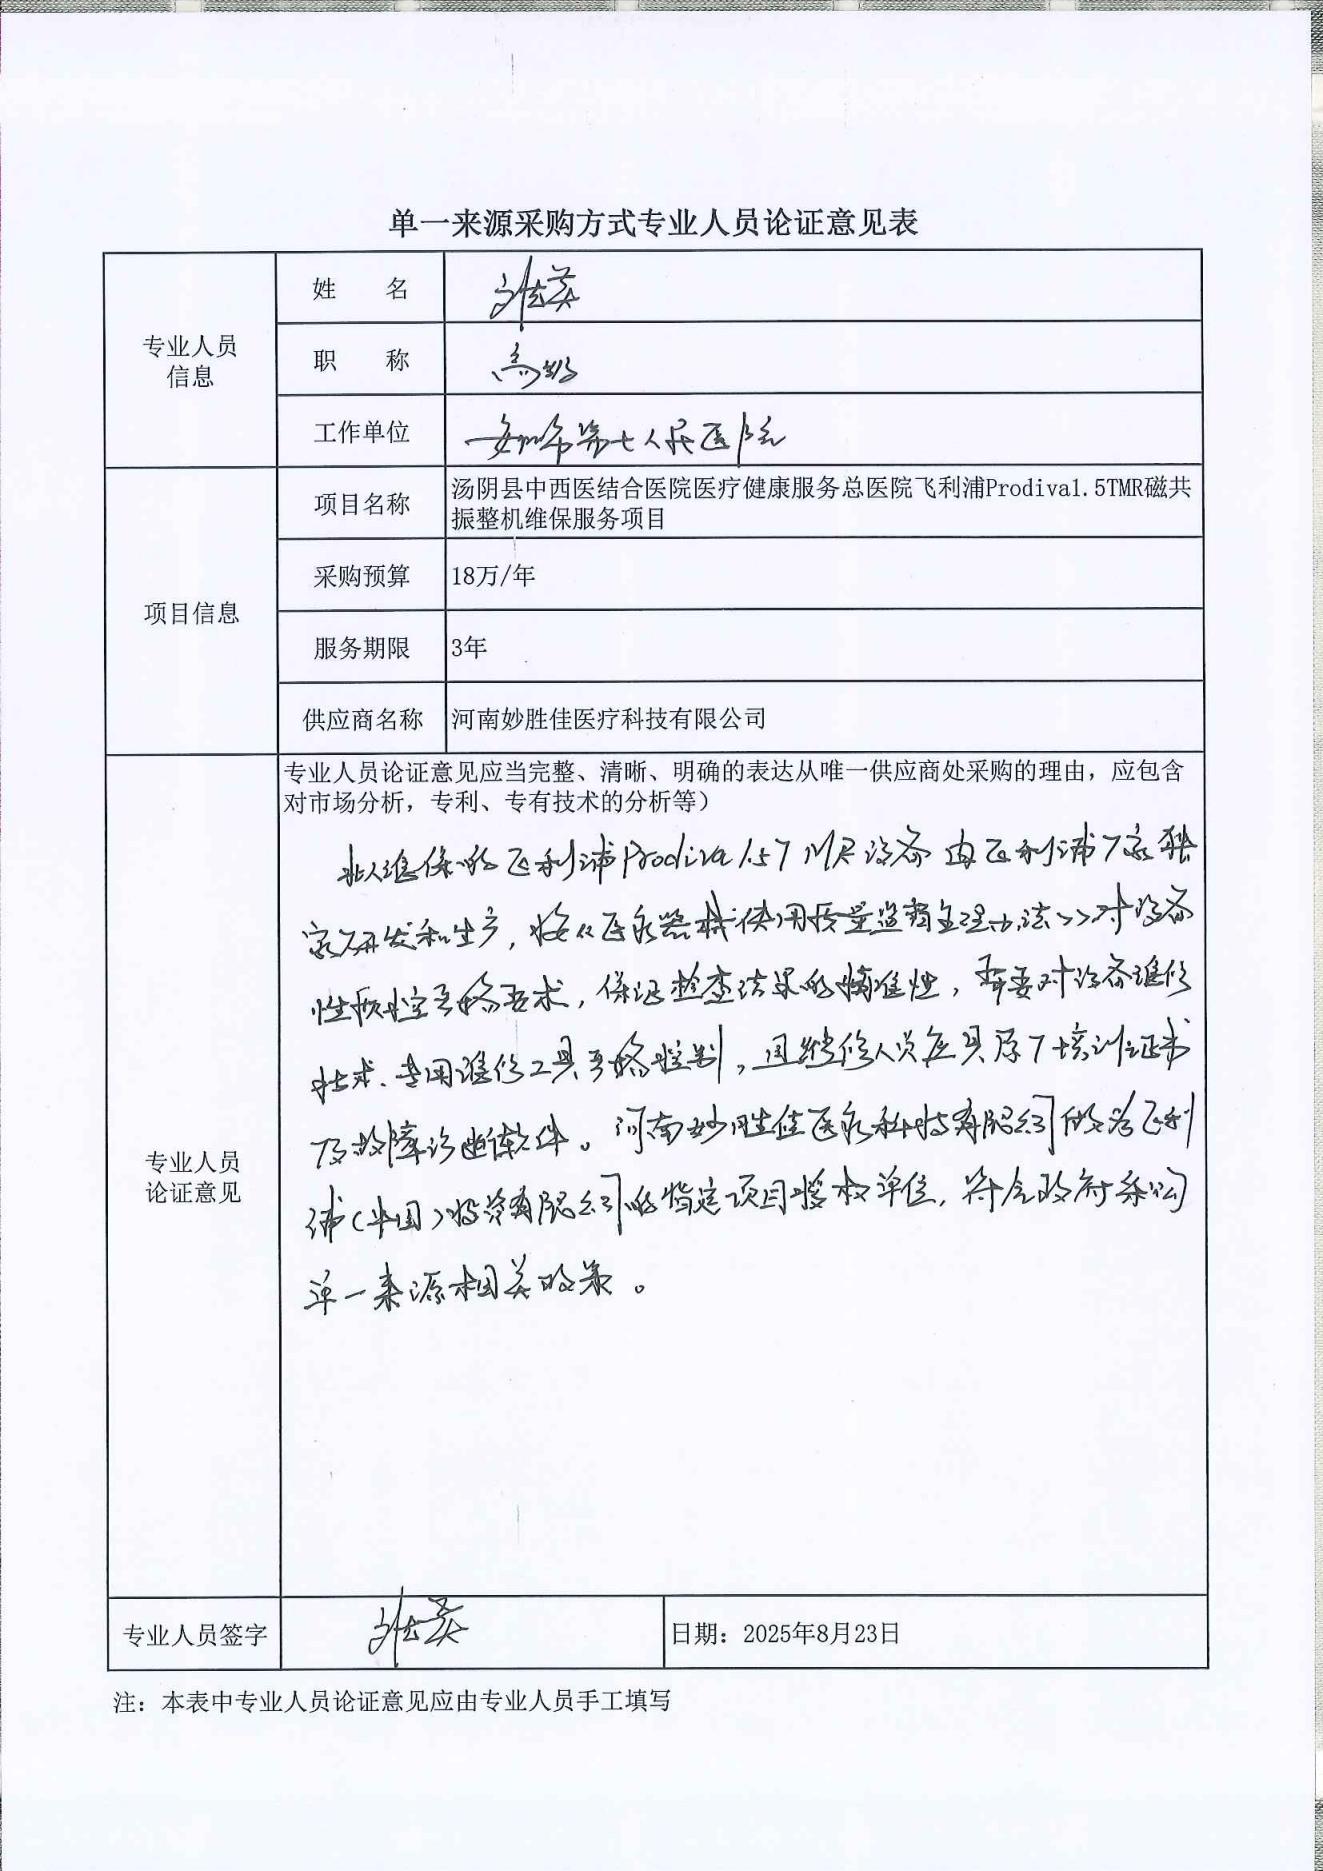 单一来源采购方式专业人员论证意见表
专业人员
信息
姓 名
职 称
高级
工作单位
安阳市第七人民医院
项目信息
项目名称
汤阴县中西医结合医院医疗健康服务总医院飞利浦Prodiva1.5TMR磁共
振整机维保服务项目
采购预算
18万/年
服务期限
3年
供应商名称
河南妙胜佳医疗科技有限公司
专业人员
论证意见
专业人员论证意见应当完整、清晰、明确的表达从唯一供应商处采购的理由，应包含
对市场分析，专利、专有技术的分析等）
维保的飞利浦Prodiva 1.5T MR设备由飞利浦厂家独
家研发和生产，按《医疗器械使用质量监督管理办法》对设备
性质控严格要求，保证检查结果的精准性，需要对设备维修
技术、专用维修工具严格控制，且维修人员应具原厂培训证书
及故障诊断软件。河南妙胜佳医疗科技有限公司做为飞利
浦（中国）投资有限公司的指定项目授权单位，符合政府采购
单一来源相关政策。
专业人员签字
日期：2025年8月23日
注：本表中专业人员论证意见应由专业人员手工填写